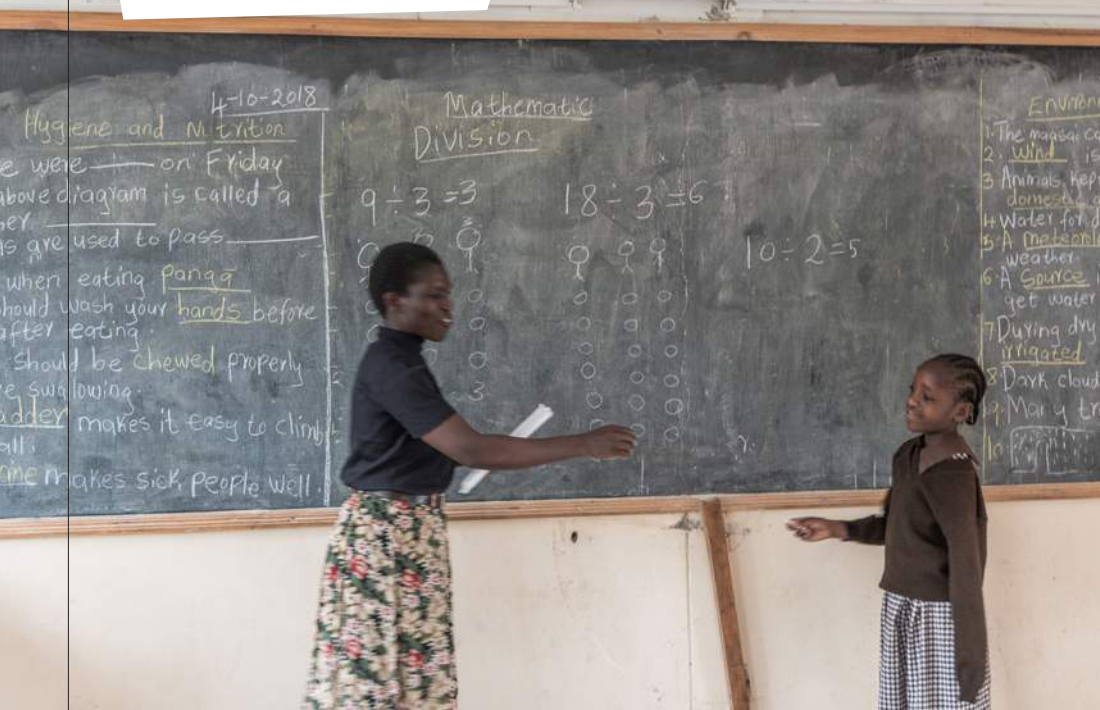 4-10-2018
Hygiene and Nutrition
e were on Friday
above diagram is called a
her.
s are used to pass
when eating panga
hould wash your hands before
after eating.
should be chewed properly
e swallowing.
adder makes it easy to climb
all.
ine makes sick people well.
Mathematic
Division
9 ÷ 3 = 3
18 ÷ 3 = 6
10 ÷ 2 = 5
3
Environ
1. The maasai co
2. wind is
3 Animals kep
domestic a
4 Water for d
5 A meteorolo
weather.
6 A Source
get water
7 During dry
irrigated
8 Dark cloud
9. Many tr
10